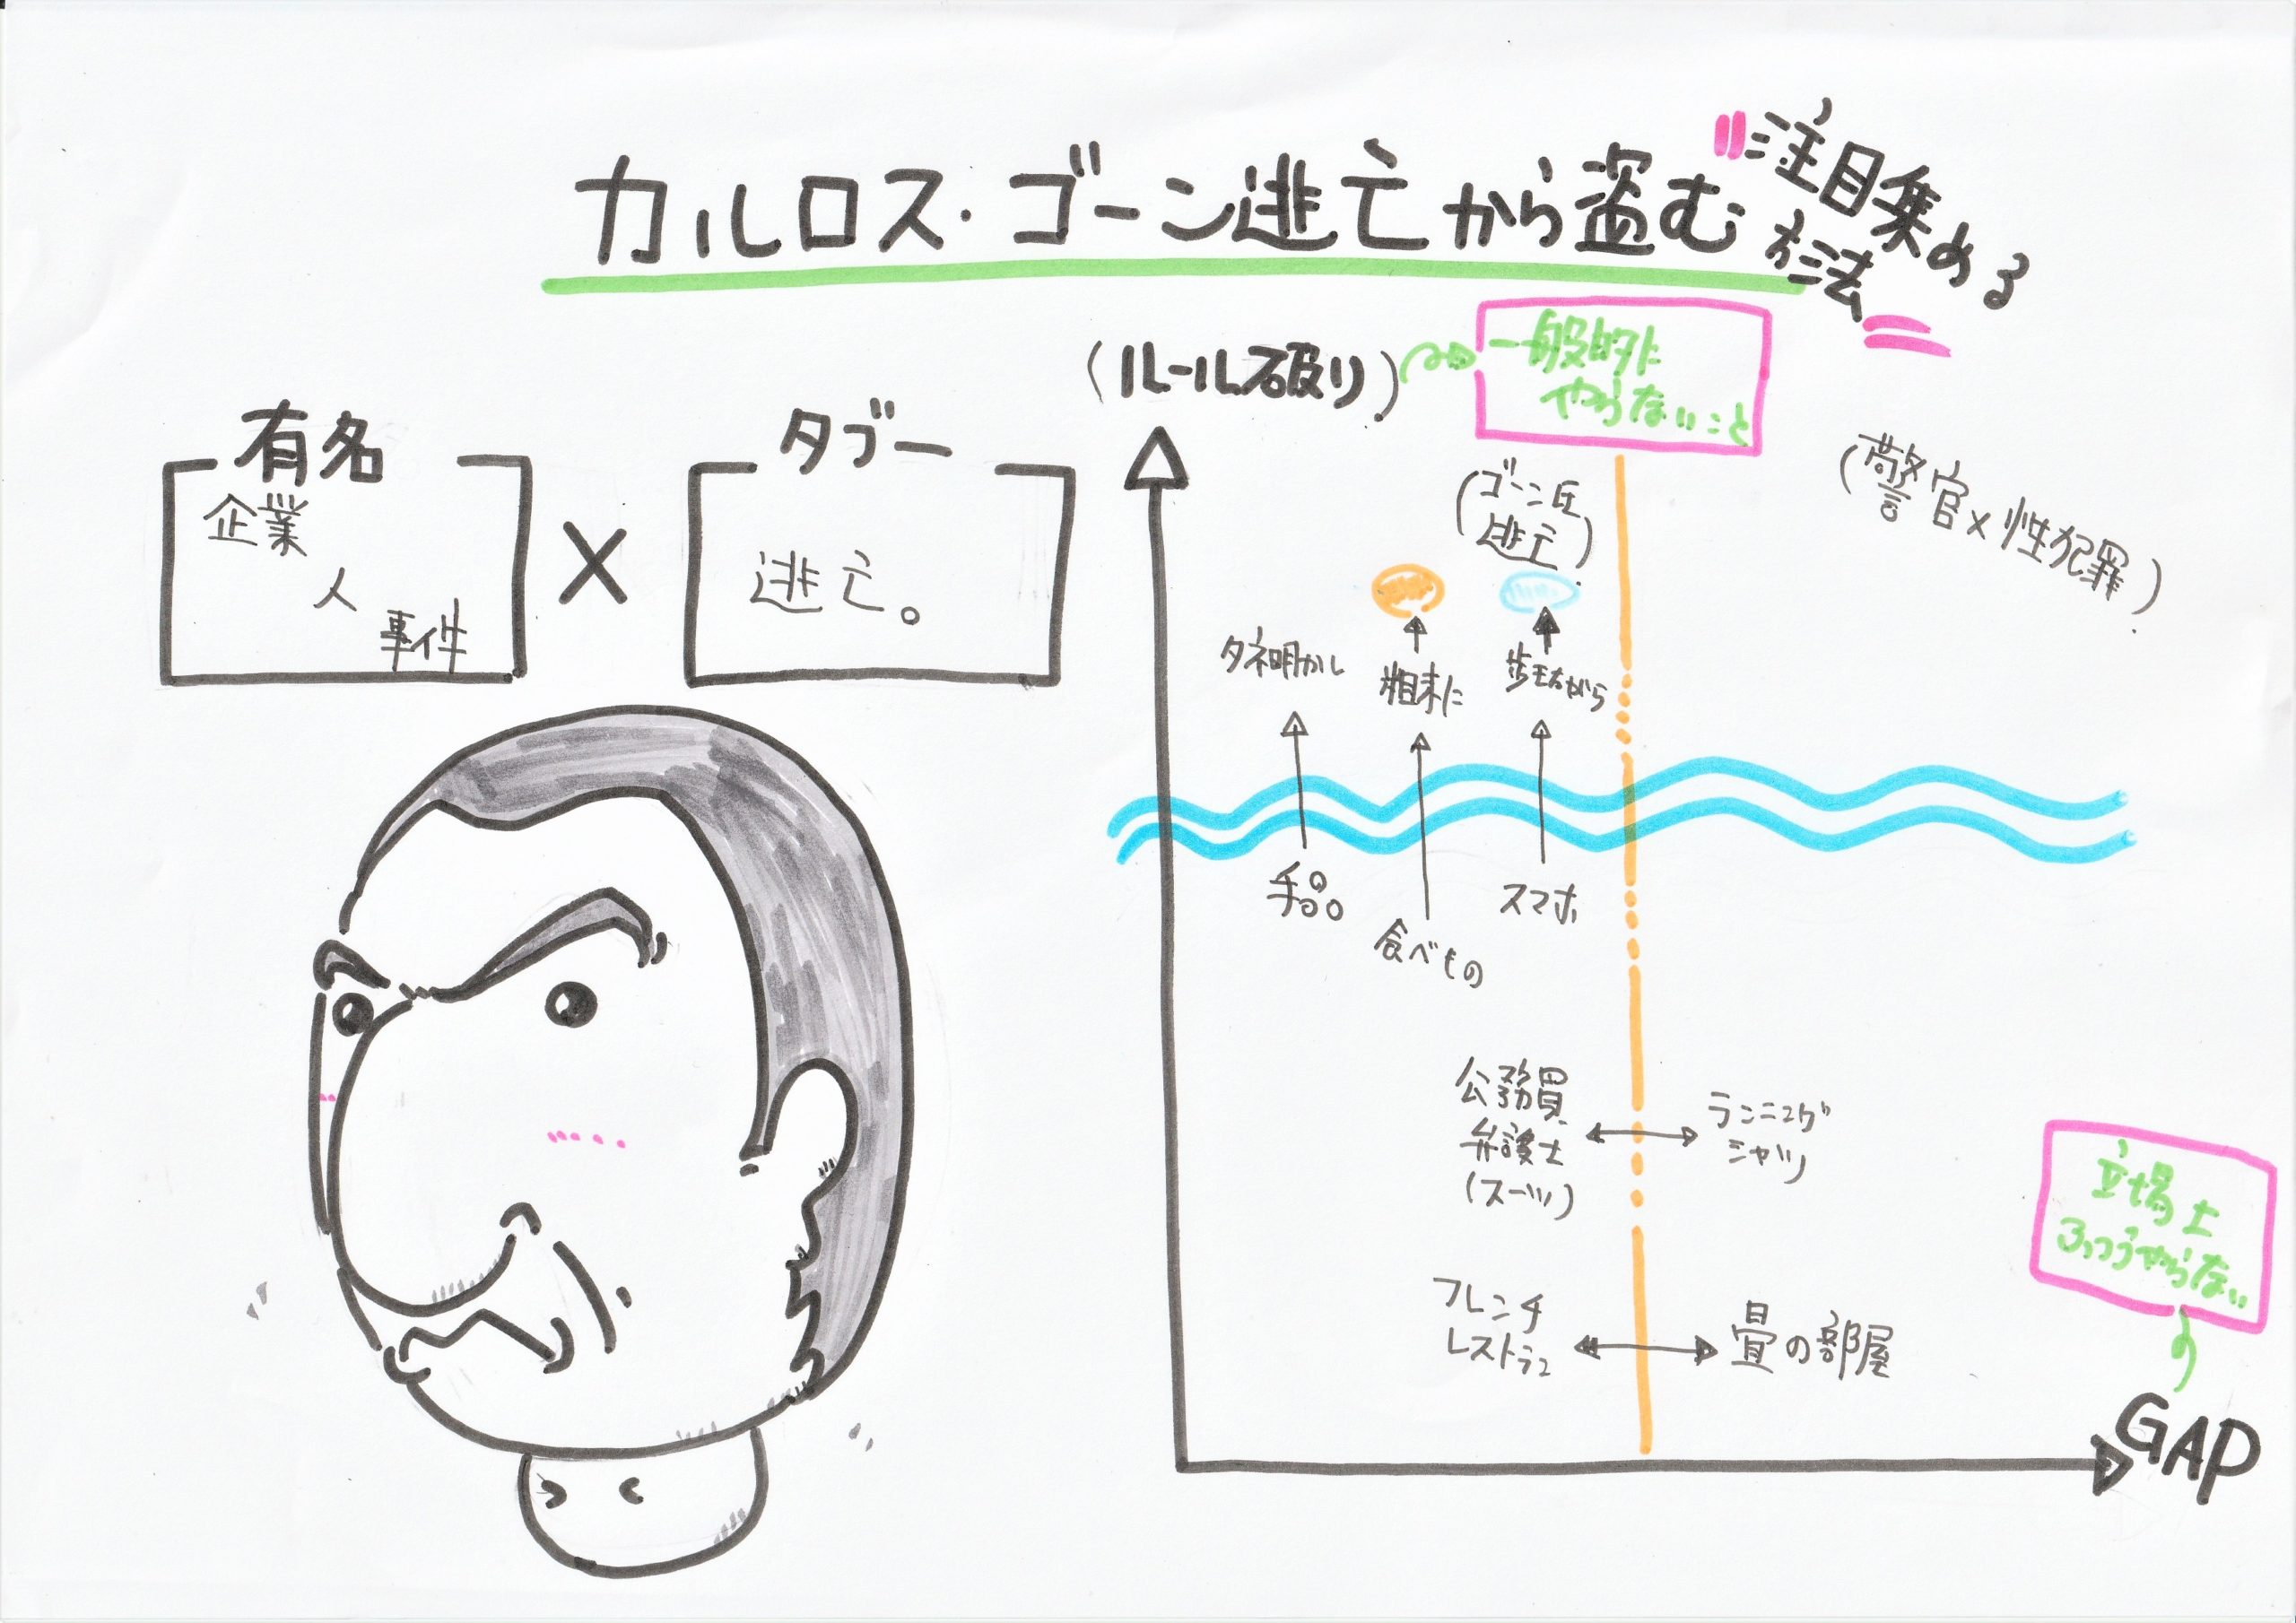 カルロス・ゴーン逃亡から盗む
注目集める
方法
(ルール破り)
一般的に
やらないこと
有名
企業
人
事件
×
タブー
逃亡。
(ゴーン氏
逃亡)
(警官×性犯罪)
タネ明かし
粗末に
歩きながら
手品
食べもの
スマホ
公務員
弁護士
(スーツ)
ランニング
シャツ
フレンチ
レストラン
畳の部屋
立場上
ふつうやらない
GAP